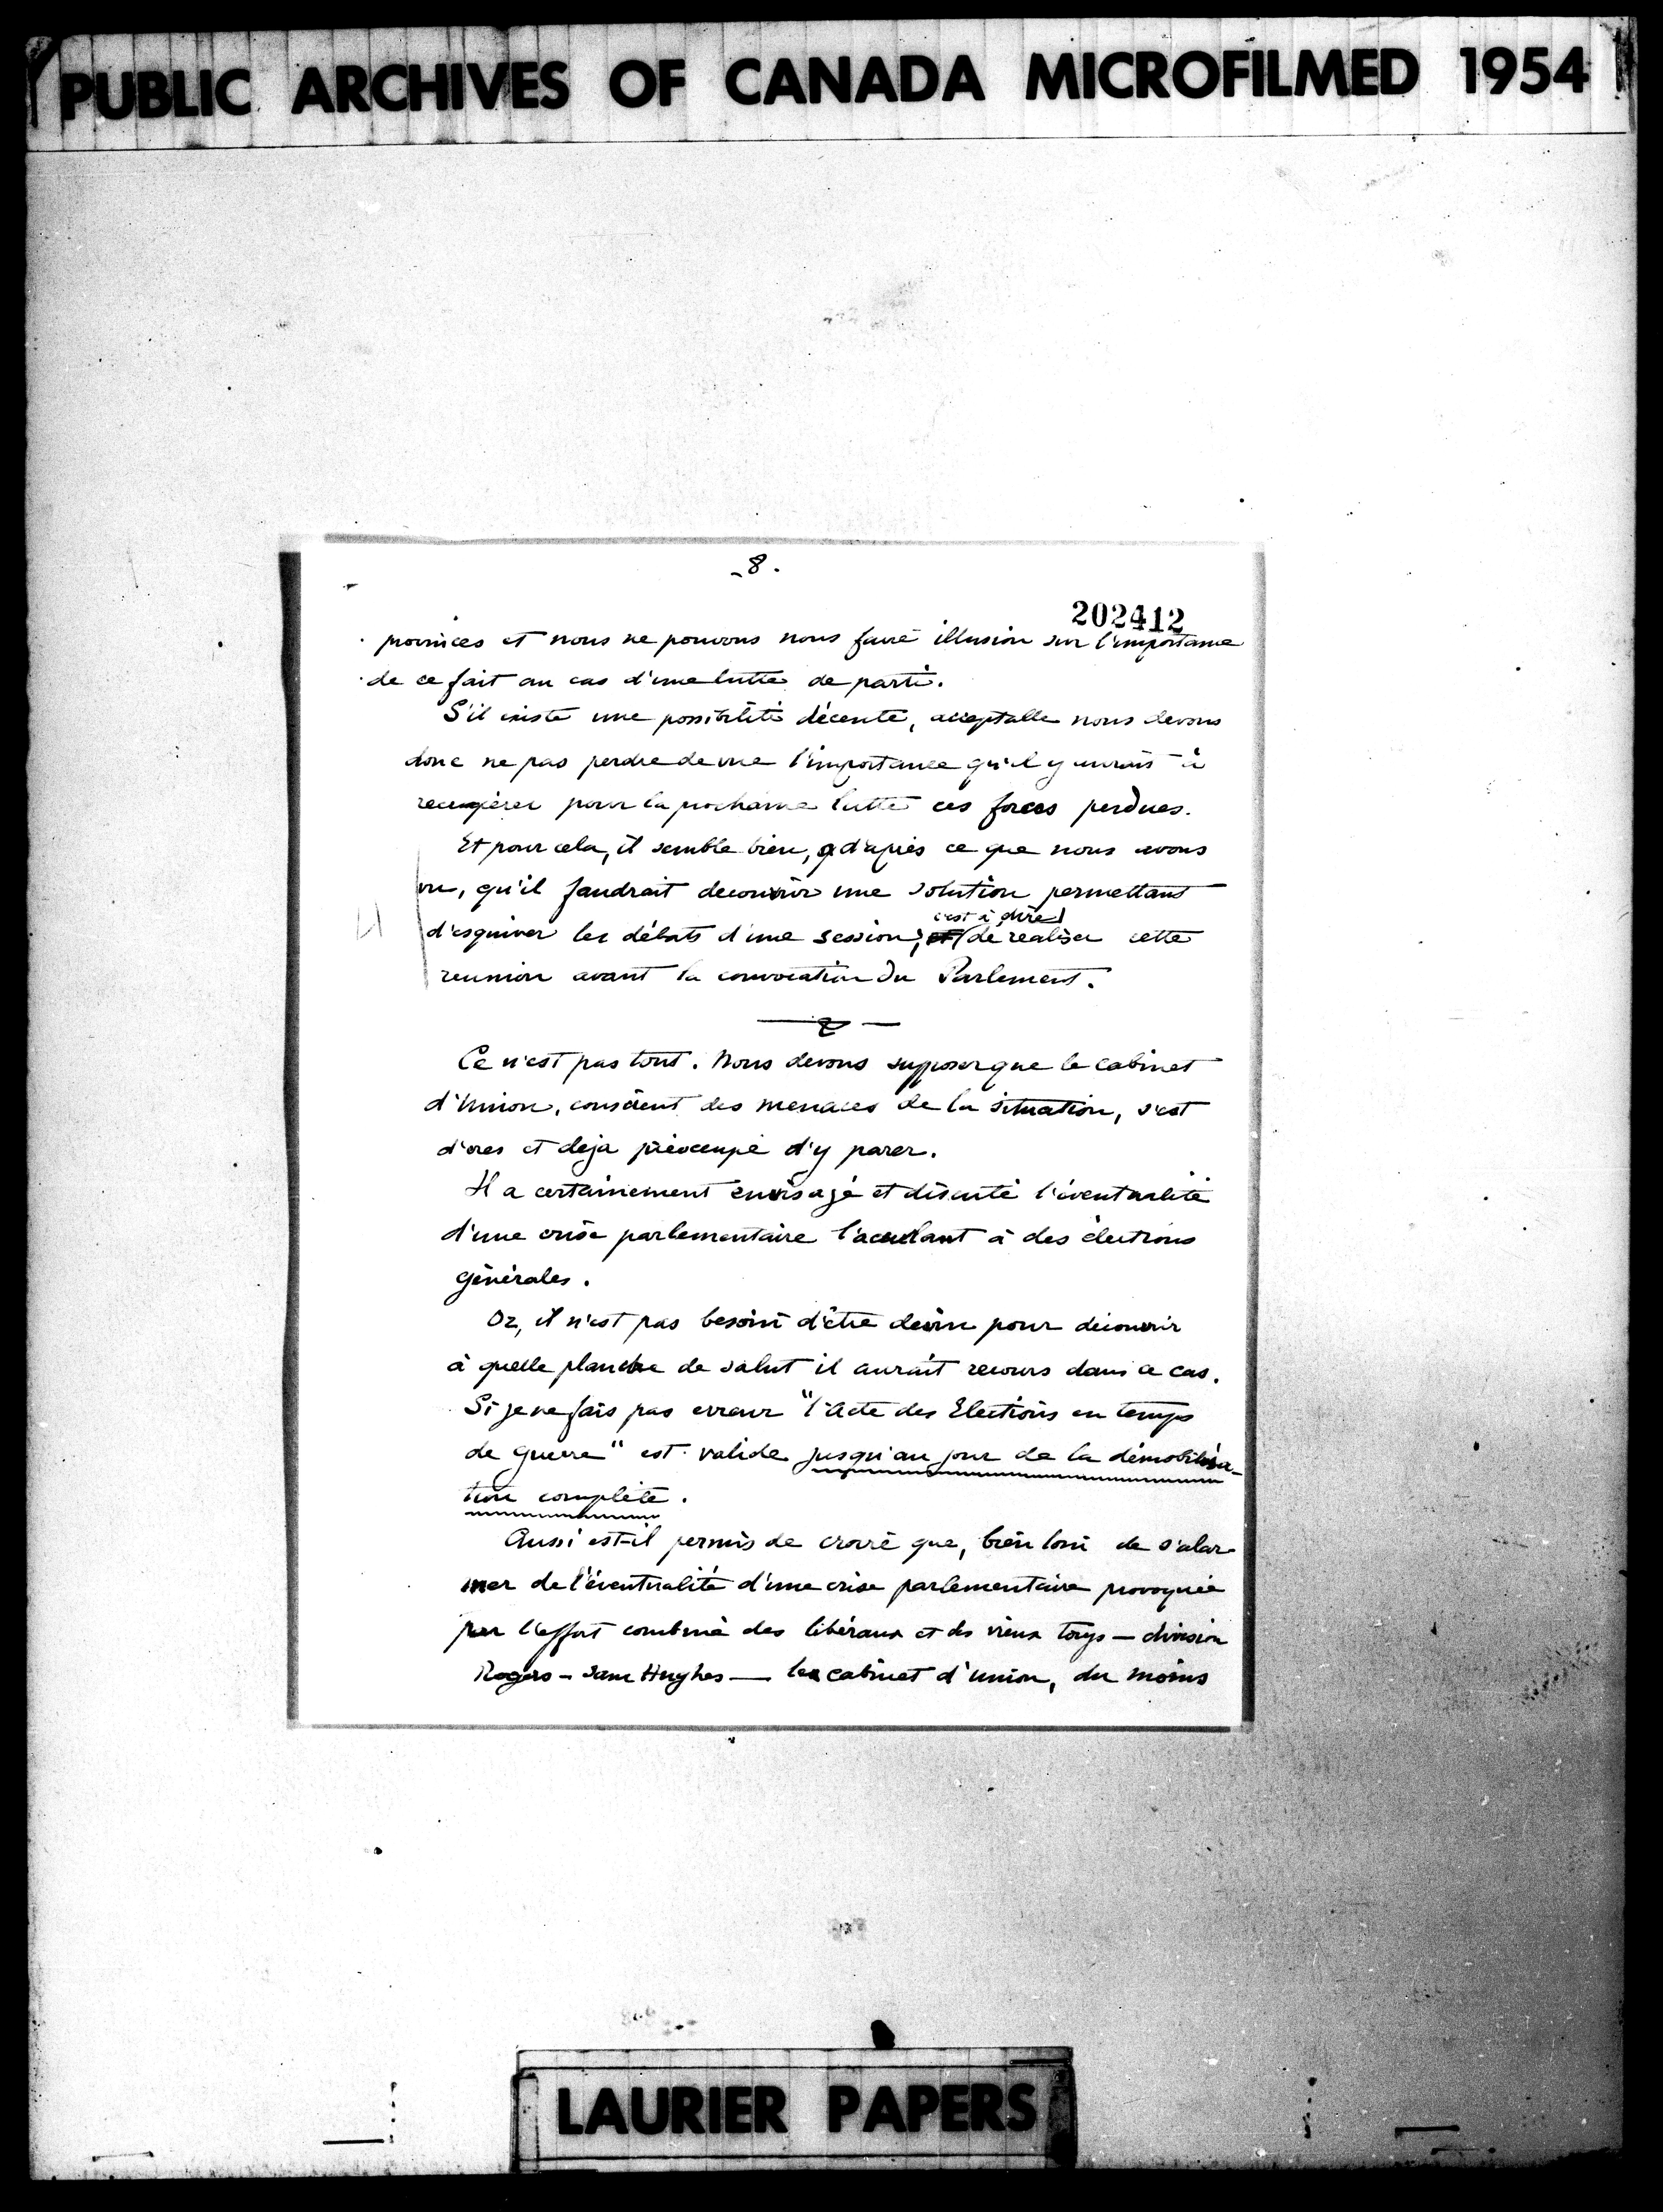 PUBLIC ARCHIVES OF CANADA MICROFILMED 1954
- 8 .
202412
provinces et nous ne pouvons nous faire illusion sur l'importance
de ce fait au cas d'une lutte de parti.
S'il existe une possibilité décente, acceptable nous devons
donc ne pas perdre de vue l'importance qu'il y aurait à
recupérer pour la prochaine lutte ces forces perdues.
Et pour cela, il semble bien, d'après ce que nous avons
vu, qu'il faudrait decouvrir une solution permettant
c'est à dire
d'esquiver les débats d'une session, et de realiser cette
reunion avant la convocation du Parlement.
Ce n'est pas tout. Nous devons supposer que le cabinet
d'Union, conscient des menaces de la situation, s'est
d'ores et deja préoccupé d'y parer.
Il a certainement envisagé et discuté l'éventualité
d'une crise parlementaire l'acculant à des élections
générales.
Or, il n'est pas besoin d'être devin pour découvrir
à quelle planche de salut il aurait recours dans ce cas.
Si je ne fais pas erreur "l'Acte des Elections en temps
de guerre" est valide jusqu'au jour de la démobilisa-
tion complète.
Aussi est-il permis de croire que, bien loin de s'alar-
mer de l'éventualité d'une crise parlementaire provoquée
par l'effort combiné des libéraux et des vieux torys — division
Rogers - Sam Hughes — le cabinet d'union, du moins
LAURIER PAPERS